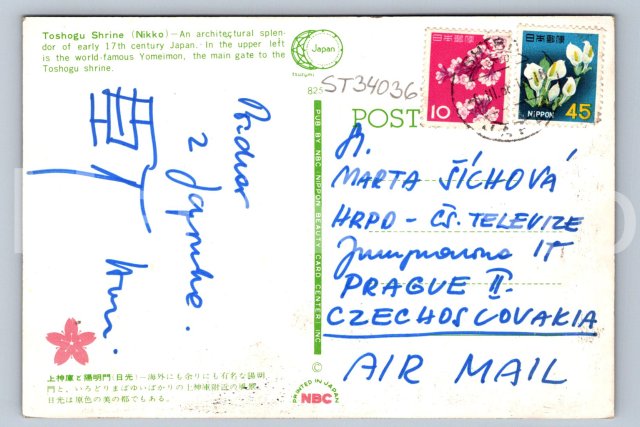 Toshogu Shrine (Nikko)—An architectural splen-
dor of early 17th century Japan. In the upper left
is the world-famous Yomeimon, the main gate to the
Toshogu shrine.
Japan
tsutumi
825
ST34036
POST
日本郵便
10
日本郵便
NIPPON 45
Pozdrav
z Japonska.
PUB BY NBC (NIPPON BEAUTY CARD CENTER) INC
MARTA ŠÍCHOVÁ
HRPD - ČS. TELEVIZE
17
PRAGUE II.
CZECHOSLOVAKIA
AIR MAIL
上神庫と陽明門(日光)—海外にも余りにも有名な陽明
門と、いろどりまばゆいばかりの上神庫附近の風景。
日光は原色の美の都でもある。
©
PRINTED IN JAPAN
NBC